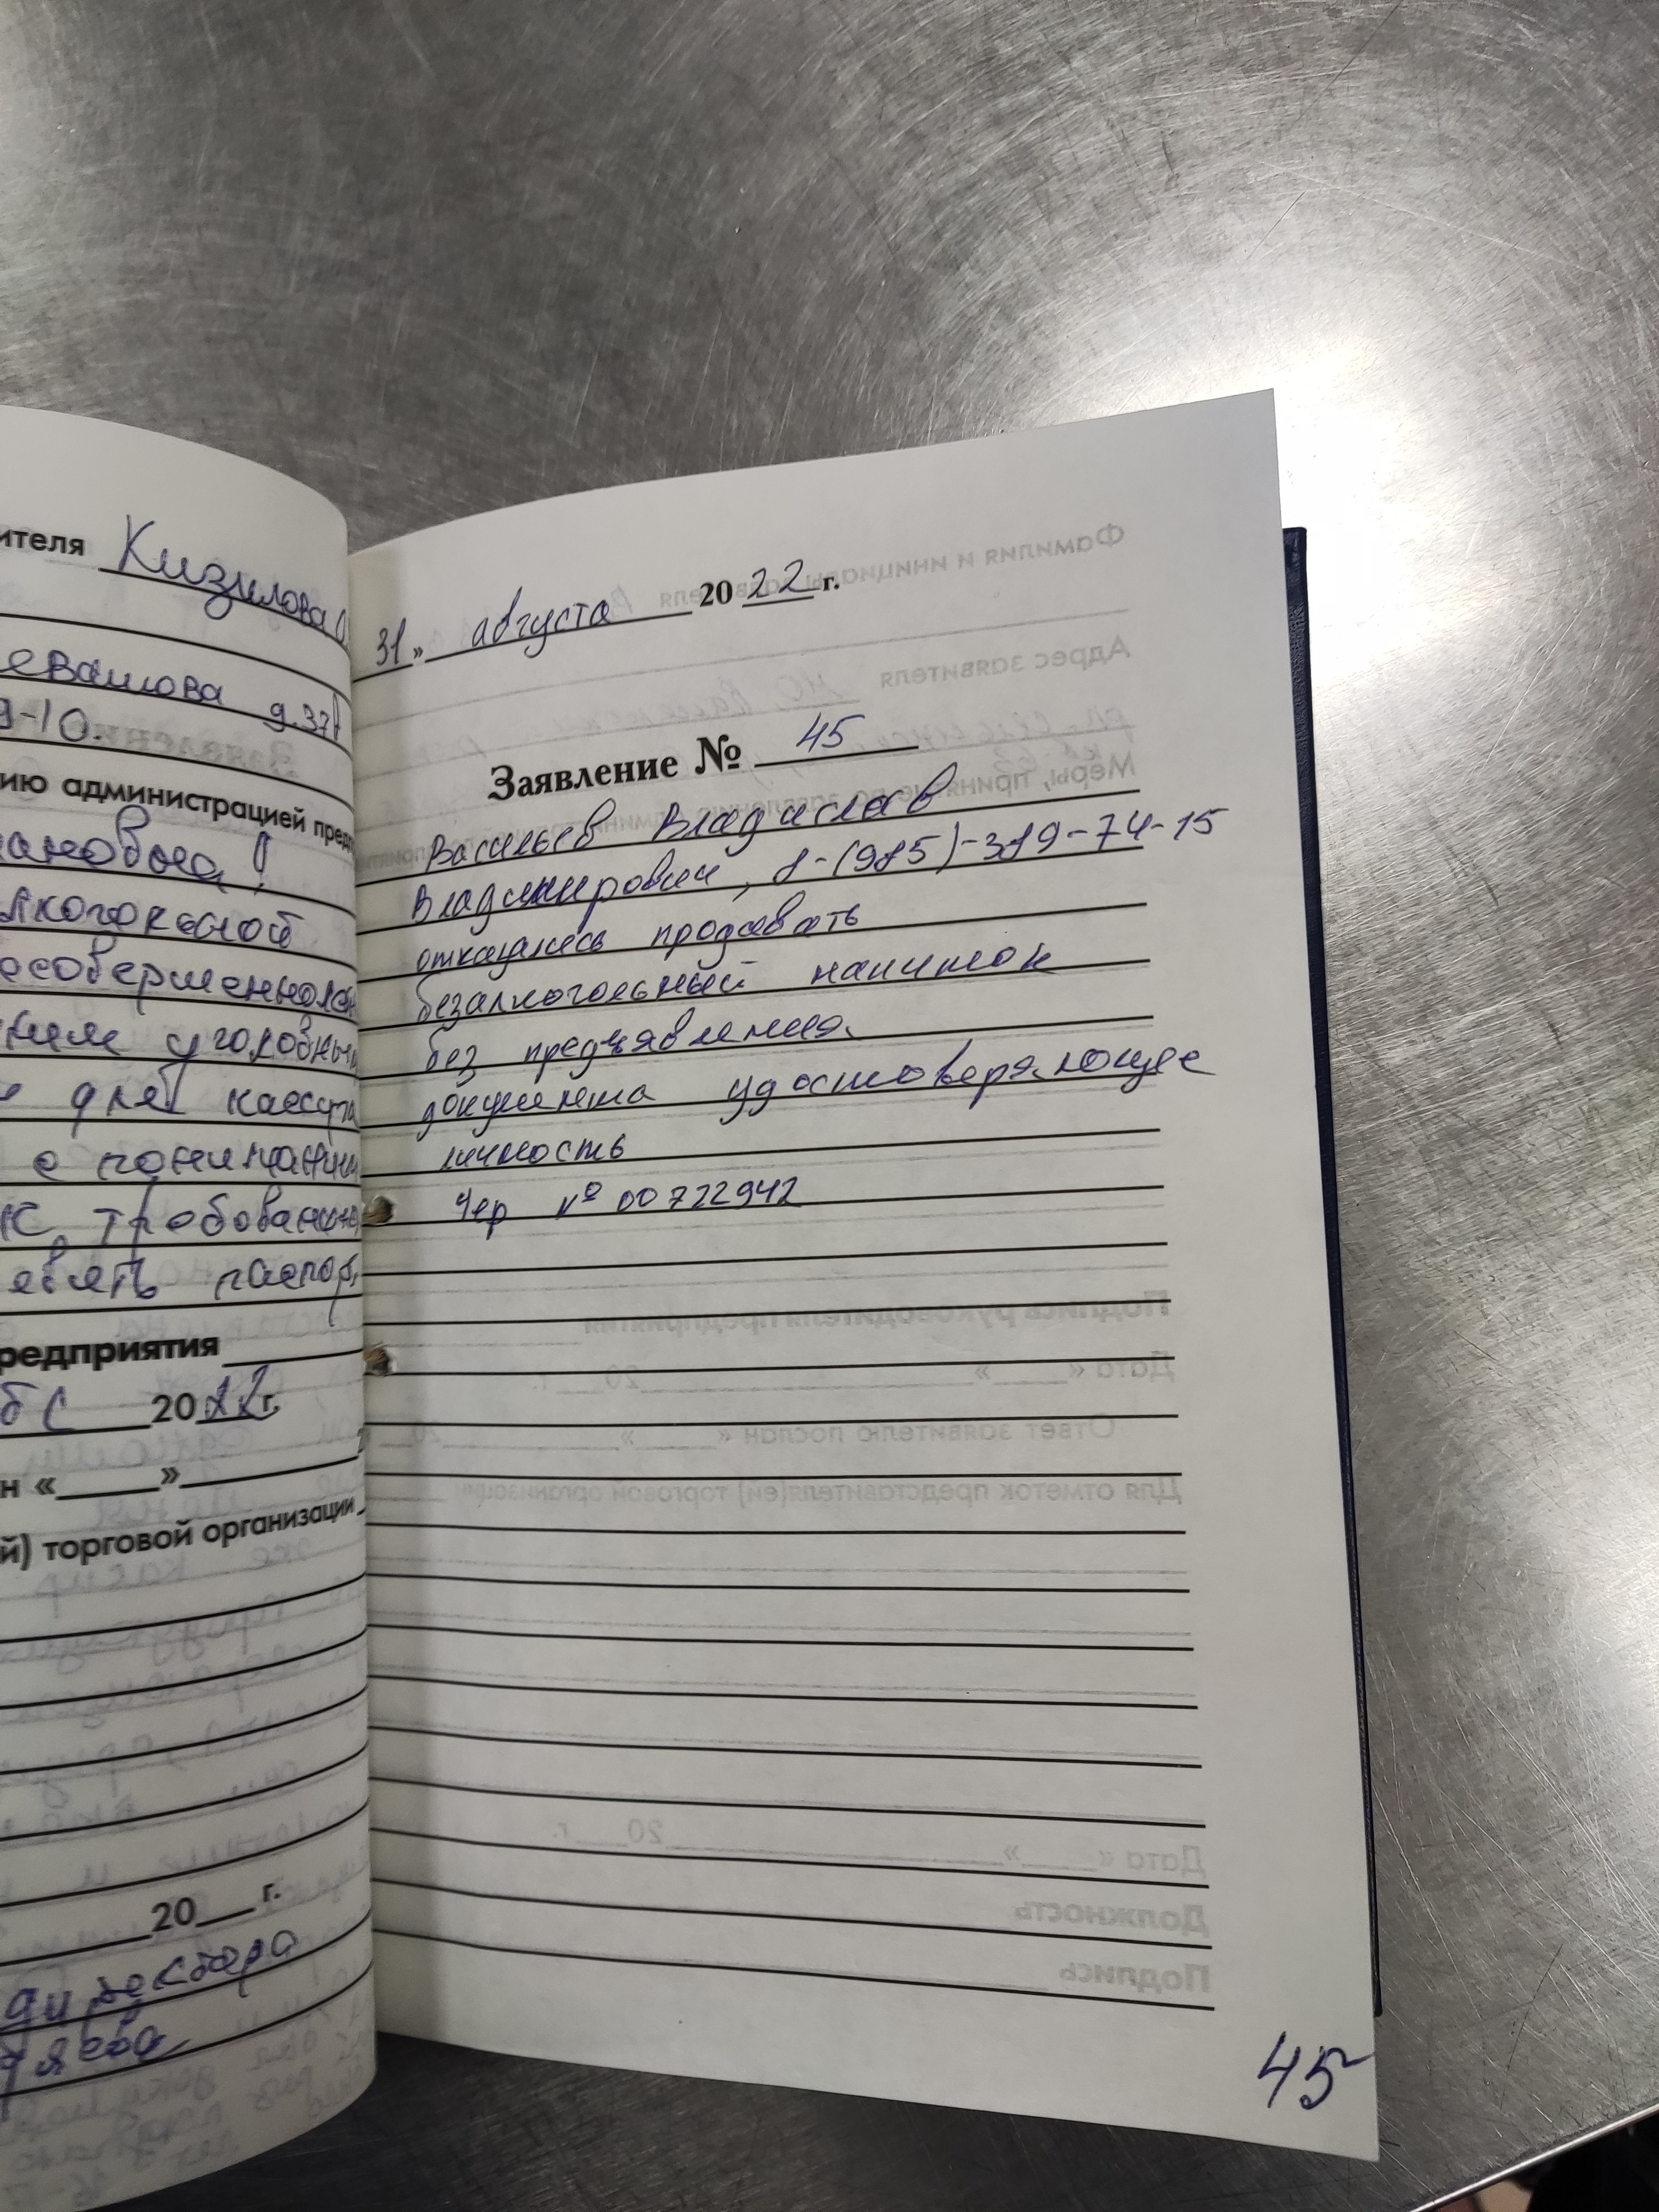 ителя Кизилова
евашова д.37
9-10.
ию администрацией предп
ановна!
лкогольной
есовершеннолет
ним уголовны
для кассира
с пониманием
к требованию
явить паспор
редприятия
20 22 г.
н « » 2
й) торговой организации
20 г.
директора
31 » августа 20 22 г.
Заявление № 45
Васильев Владислав
Владимирович, 8-(985)-319-74-15
отказались продавать
безалкогольный напиток
без предъявления
документа удостоверяющее
личность
Чер № 00722942
45